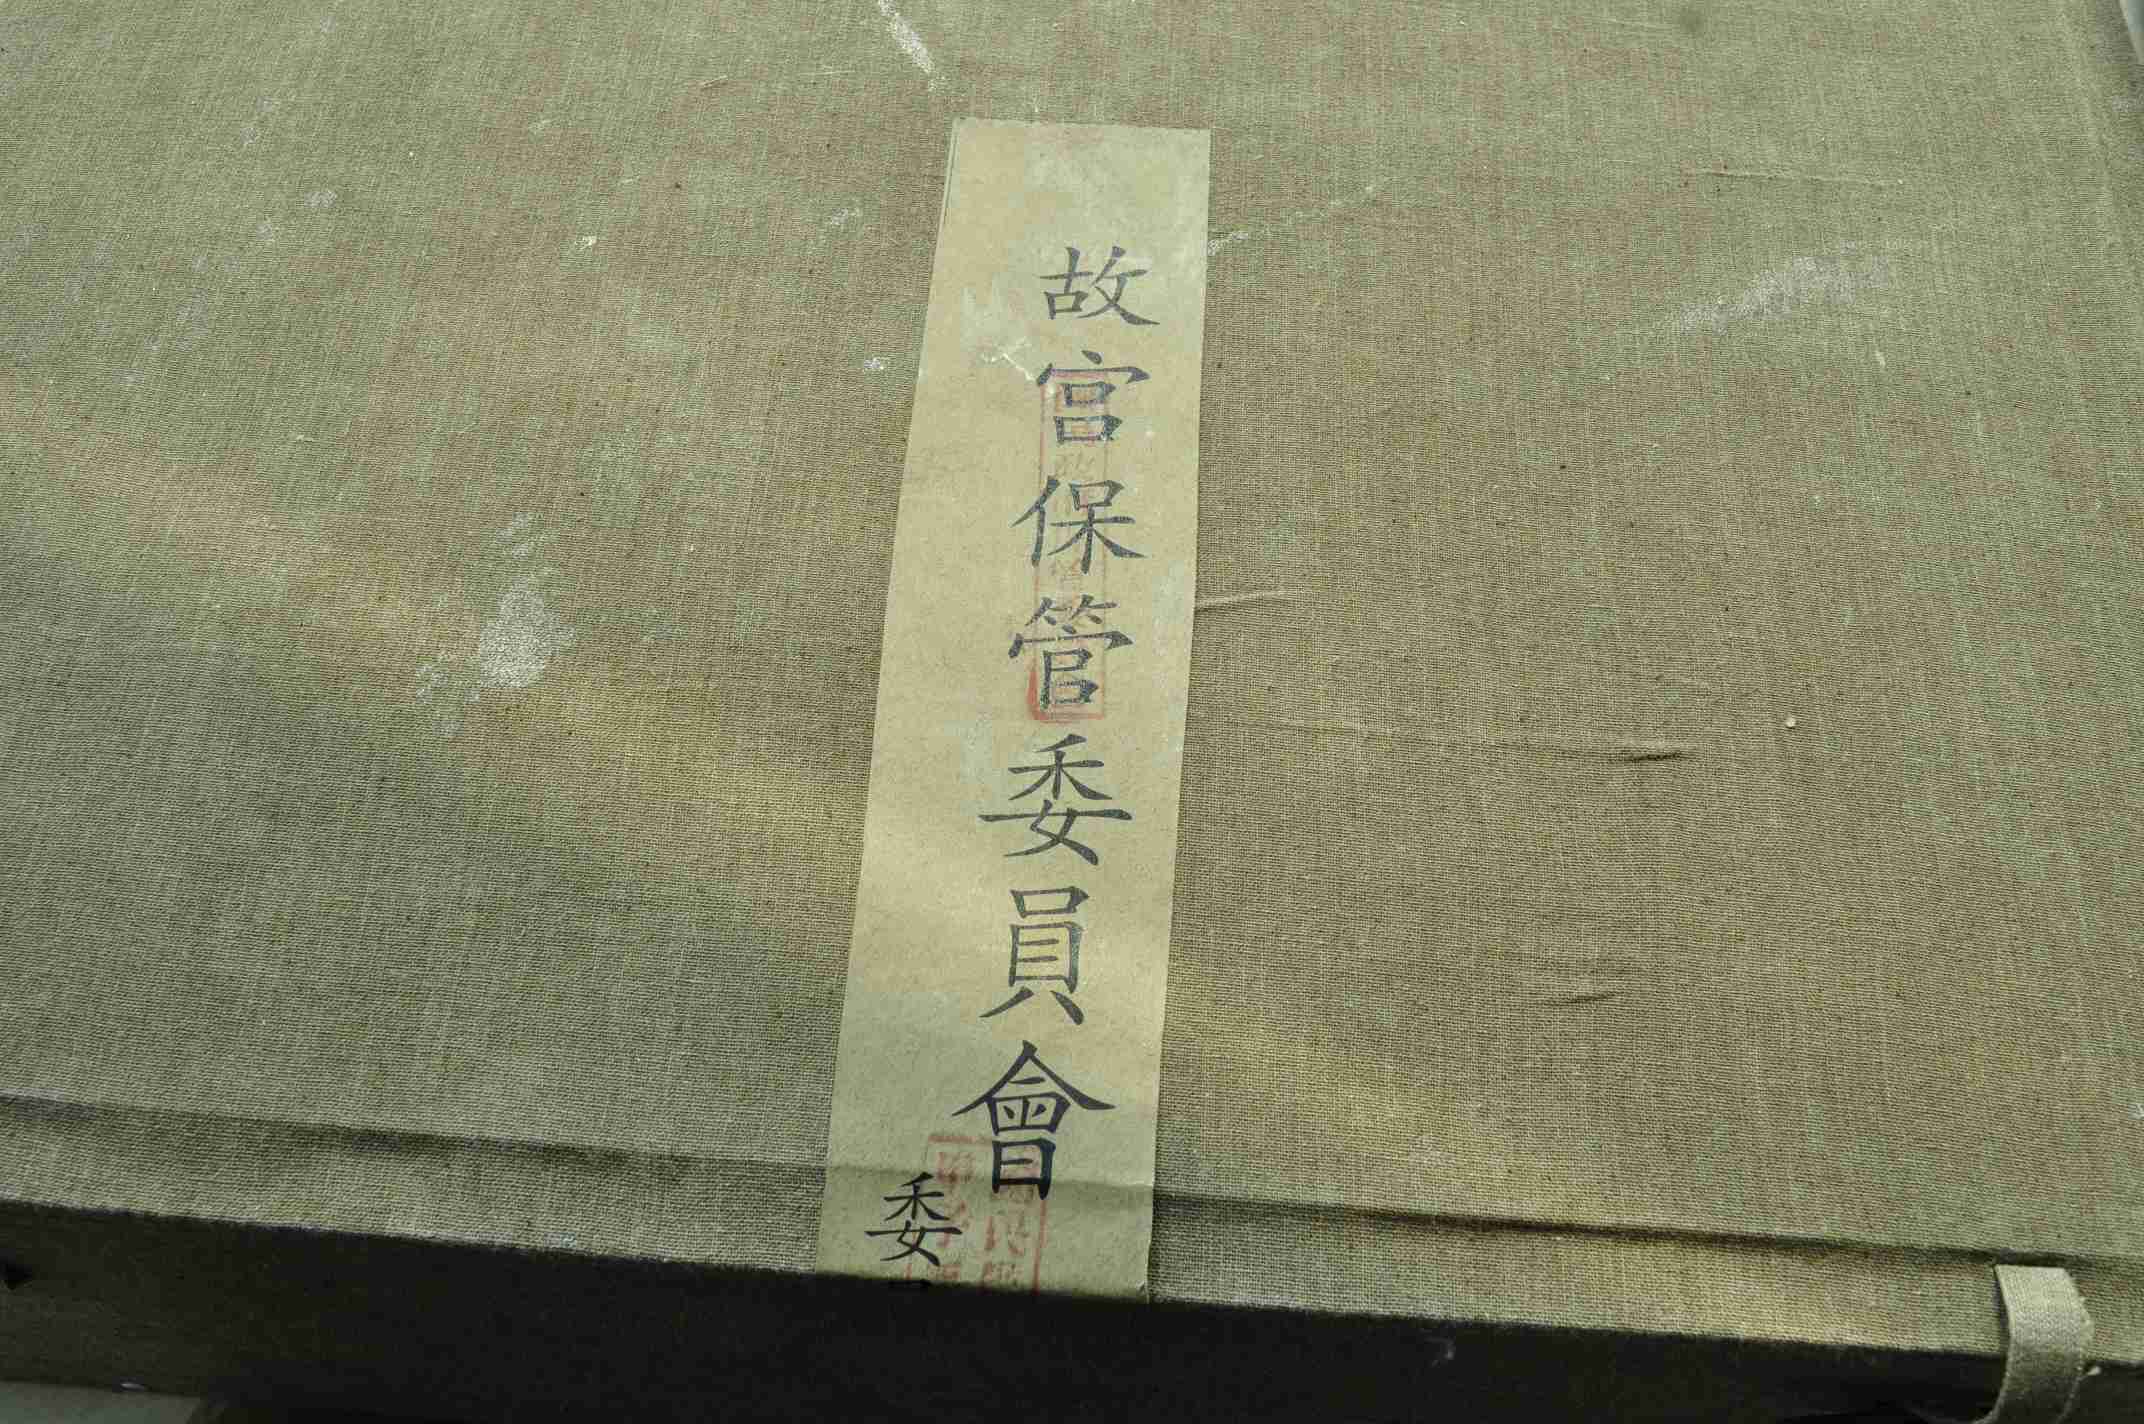 故宮保管委員會
委